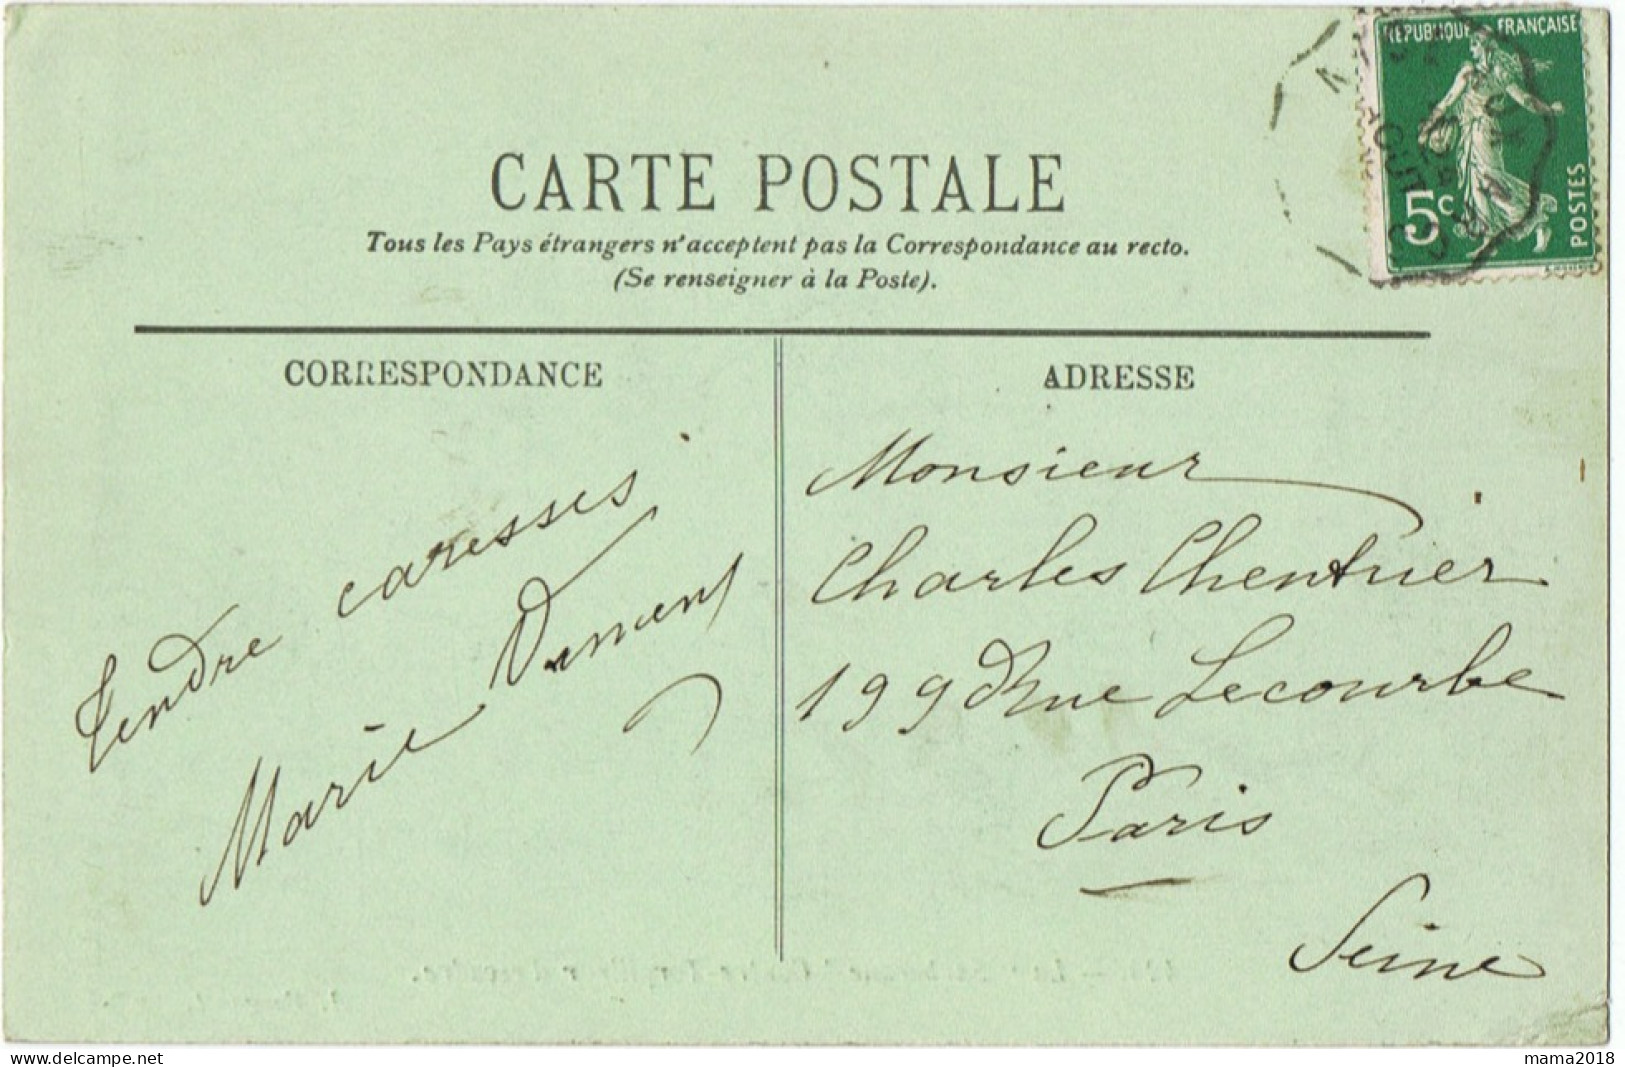 RÉPUBLIQUE FRANÇAISE
5c
POSTES
CARTE POSTALE
Tous les Pays étrangers n'acceptent pas la Correspondance au recto.
(Se renseigner à la Poste).
CORRESPONDANCE
Tendre caresses
Marie
ADRESSE
Monsieur
Charles Chentrier
199 Rue Lecourbe
Paris
Seine
www.delcampe.net
mama2018